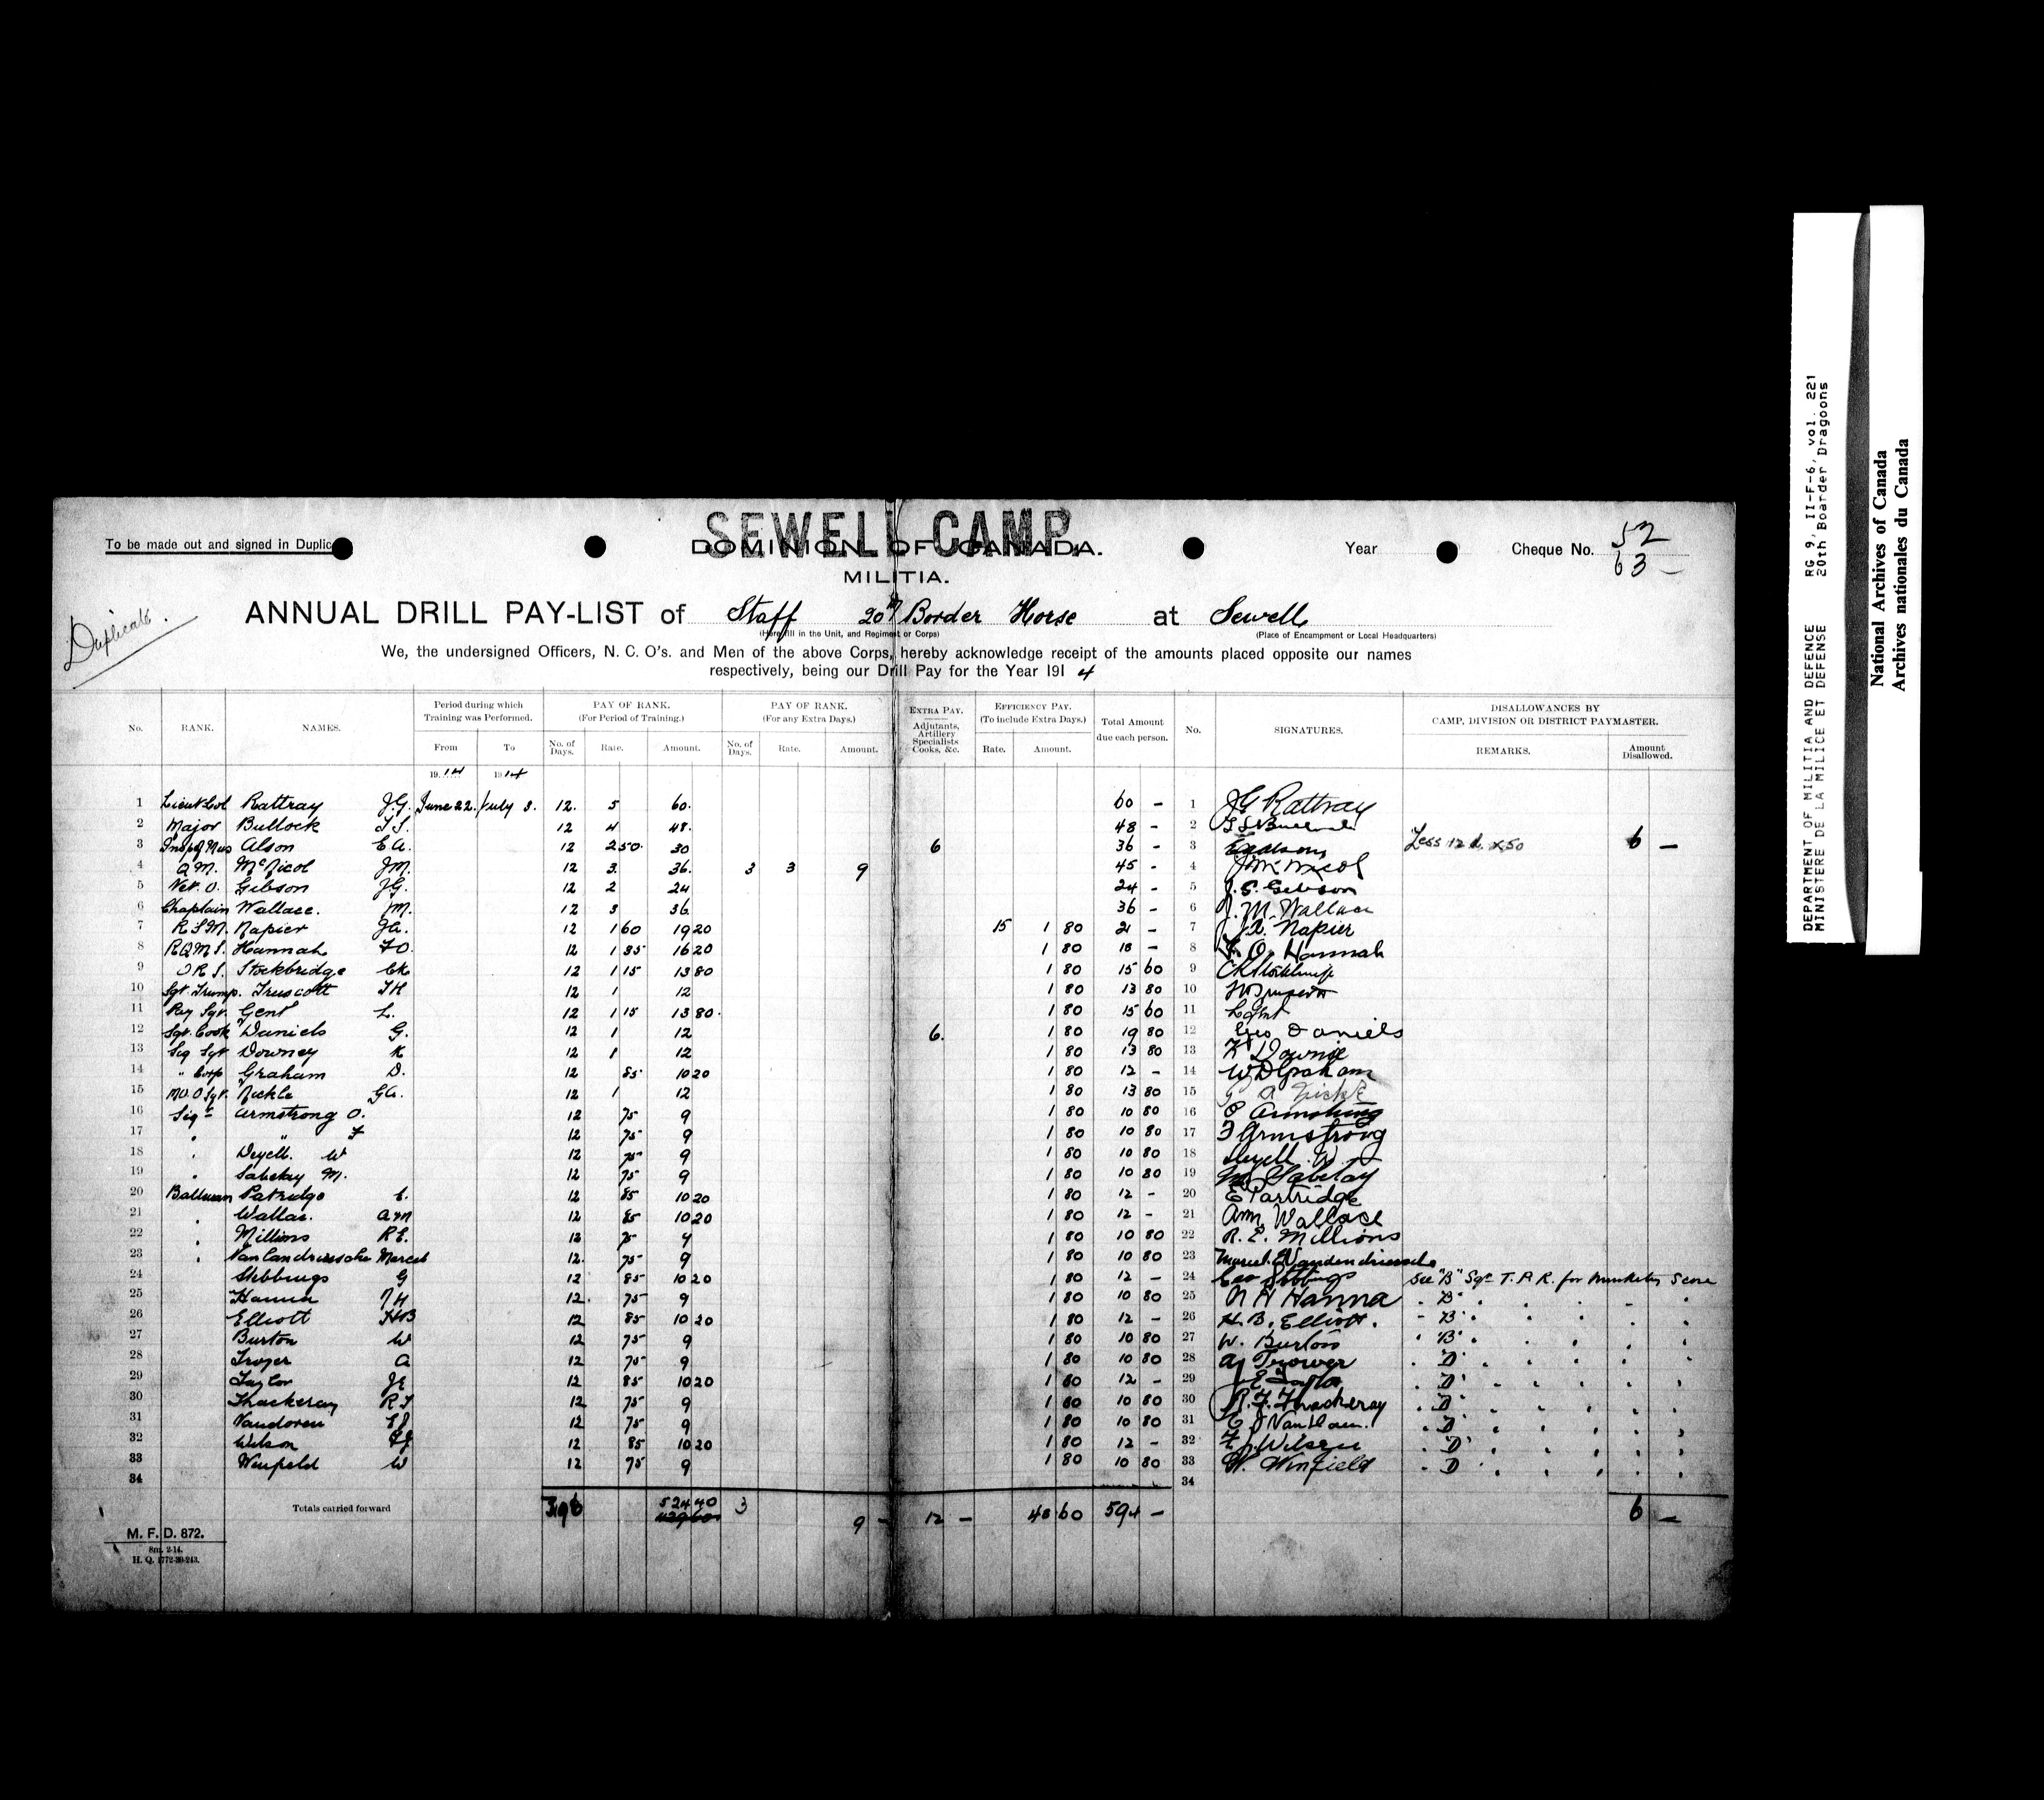 SEWELL CAMP.
To be made out and signed in Duplic
DOMINION OF CANADA.
Year
Cheque No. 52
63 -
MILITIA.
Duplicate.
ANNUAL DRILL PAY-LIST of Staff 20th Border Horse at Sewell
(Here fill in the Unit, and Regiment or Corps) (Place of Encampment or Local Headquarters)
We, the undersigned Officers, N. C. O's. and Men of the above Corps, hereby acknowledge receipt of the amounts placed opposite our names
respectively, being our Drill Pay for the Year 191 4
No. RANK. NAMES. Period during which Training was Performed. From To PAY OF RANK. (For Period of Training.) No. of Days. Rate. Amount. PAY OF RANK. (For any Extra Days.) No. of Days. Rate. Amount. EXTRA PAY. Adjutants, Artillery Specialists Cooks, &c. EFFICIENCY PAY. (To include Extra Days.) Rate. Amount. Total Amount due each person. No. SIGNATURES. DISALLOWANCES BY CAMP, DIVISION OR DISTRICT PAYMASTER. REMARKS. Amount Disallowed.
19 14 19 14
1 Lieut Col Rattray J.G. June 22. July 3. 12. 5 60. 60 - 1 JG Rattray
2 Major Bullock T S. 12 4 48. 48 - 2
3 Alson E A. 12 2 50 30 6 36 - 3 Less 12 d. x 50 6 -
4 Q M. McNicol J M. 12 3. 36. 3 3 9 45 - 4 J M McNicol
5 Vet. O. Gibson J G. 12 2 24 24 - 5 J. G. Gibson
6 Chaplain Wallace. J M. 12 3 36. 36 - 6 J. M. Wallace
7 R S M. Napier J A. 12 1 60 19 20 15 1 80 21 - 7 J. A. Napier
8 R Q M S. Hannah F O. 12 1 35 16 20 1 80 18 - 8 F. O. Hannah
9 O R S. Stockbridge C K 12 1 15 13 80 1 80 15 60 9 C K Stockbridge
10 Sgt Trump. Truscott T H 12 1 12 1 80 13 80 10
11 Gent L. 12 1 15 13 80. 1 80 15 60 11 L Gent
12 Sgt. Cook Daniels G. 12 1 12 6. 1 80 19 80 12 Geo Daniels
13 Sig Sgt Downey K 12 1 12 1 80 13 80 13 K Downie
14 " Corp Graham D. 12 85 10 20 1 80 12 - 14 W D Graham
15 Nickle G A. 12 1 12 1 80 13 80 15 G A Nickle
16 Sigr Armstrong O. 12 75 9 1 80 10 80 16 O Armstrong
17 " " F 12 75 9 1 80 10 80 17 F Armstrong
18 " Deyell. W 12 75 9 1 80 10 80 18 Deyell. W.
19 " Sabelay M. 12 75 9 1 80 10 80 19 M Sabelay
20 Batman Patridge E. 12 85 10 20 1 80 12 - 20 E Partridge
21 " Wallac. A M 12 85 10 20 1 80 12 - 21 Am. Wallace
22 " Millions R E. 12 75 9 1 80 10 80 22 R. E. Millions
23 " Marcel 12. 75 9 1 80 10 80 23
24 Stebbings G 12 85 10 20 1 80 12 - 24 Geo Stebbings See "B" Sqn T. A R. for Musketry Score
25 Hanna N H 12. 75 9 1 80 10 80 25 N H Hanna " B " " " " "
26 Elliott H B 12 85 10 20 1 80 12 - 26 H. B. Elliott. " B " " " " "
27 Burton W 12 75 9 1 80 10 80 27 W. Burton " B " " " " "
28 A 12 75 9 1 80 10 80 28 A Trower " D " " " " "
29 Taylor J E 12 85 10 20 1 80 12 - 29 J E Taylor " D " " " " "
30 Thackeray R F 12 75 9 1 80 10 80 30 R. F. Thackeray " D " " " " "
31 Vandoren E J 12 75 9 1 80 10 80 31 E J " D " " " " "
32 Wilson F J 12 85 10 20 1 80 12 - 32 F. J. Wilson " D " " " " "
33 Winfield W 12 75 9 1 80 10 80 33 W. Winfield " D " " " " "
34 34
Totals carried forward 396 524 40 3 9 - 12 - 48 60 594 - 6 -
M. F. D. 872.
8m. 2-14.
H. Q. 1772-39-243.
DEPARTMENT OF MILITIA AND DEFENCE RG 9, II-F-6, vol. 221
MINISTERE DE LA MILICE ET DEFENSE 20th Boarder Dragoons
National Archives of Canada
Archives nationales du Canada